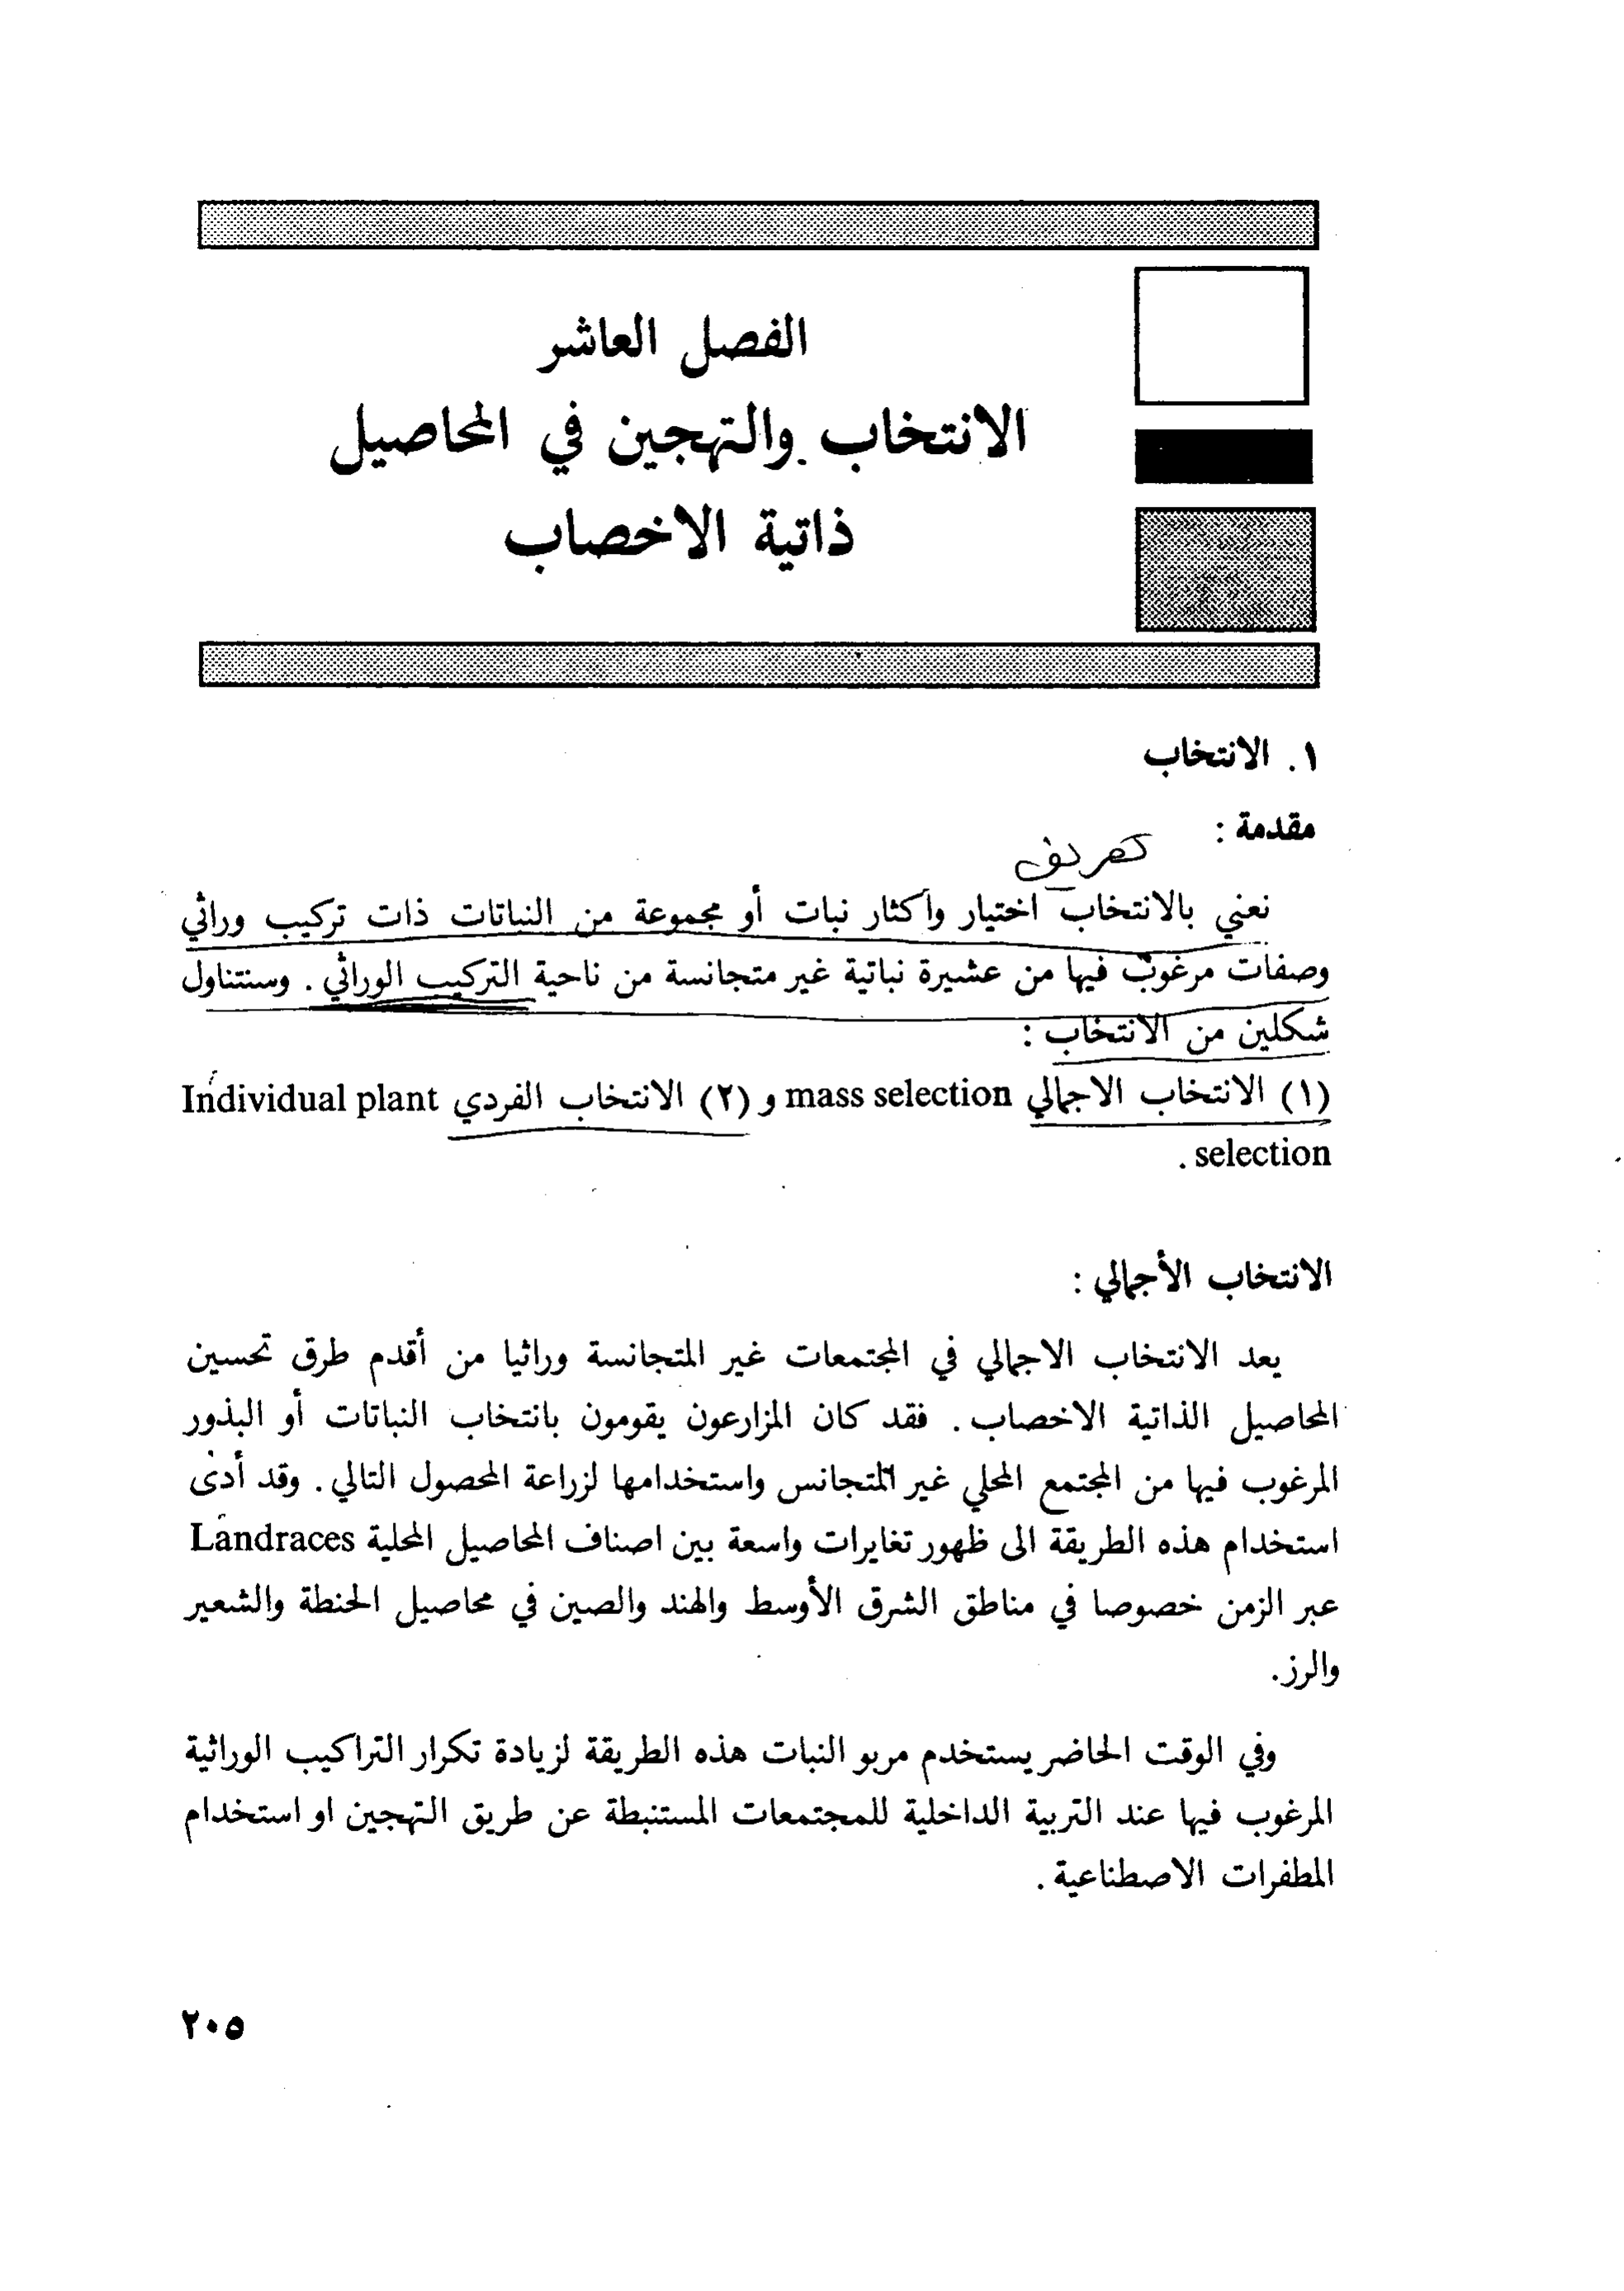 الفصل العاشر
الانتخاب والتهجين في المحاصيل
ذاتية الاخصاب
١. الانتخاب
مقدمة :
تعريف
نعني بالانتخاب اختيار واكثار نبات أو مجموعة من النباتات ذات تركيب وراثي
وصفات مرغوب فيها من عشيرة نباتية غير متجانسة من ناحية التركيب الوراثي . وسنتناول
شكلين من الانتخاب :
(١) الانتخاب الاجمالي mass selection و (٢) الانتخاب الفردي Individual plant
selection .
الانتخاب الأجمالي :
يعد الانتخاب الاجمالي في المجتمعات غير المتجانسة وراثيا من أقدم طرق تحسين
المحاصيل الذاتية الاخصاب . فقد كان المزارعون يقومون بانتخاب النباتات أو البذور
المرغوب فيها من المجتمع المحلي غير المتجانس واستخدامها لزراعة المحصول التالي . وقد أدى
استخدام هذه الطريقة الى ظهور تغايرات واسعة بين اصناف المحاصيل المحلية Landraces
عبر الزمن خصوصا في مناطق الشرق الأوسط والهند والصين في محاصيل الحنطة والشعير
والرز.
وفي الوقت الحاضر يستخدم مربو النبات هذه الطريقة لزيادة تكرار التراكيب الوراثية
المرغوب فيها عند التربية الداخلية للمجتمعات المستنبطة عن طريق التهجين او استخدام
المطفرات الاصطناعية .
٢٠٥